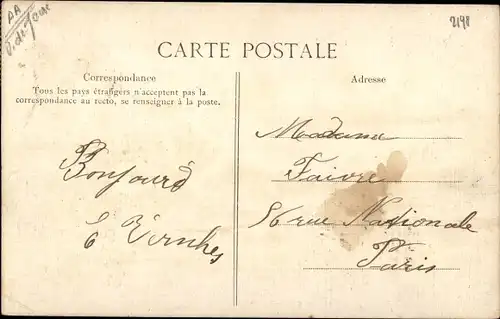 2198
CARTE POSTALE
Correspondance
Tous les pays étrangers n'acceptent pas la
correspondance au recto, se renseigner à la poste.
Adresse
Bonjours
E
Madame
Faivre
rue Nationale
Paris